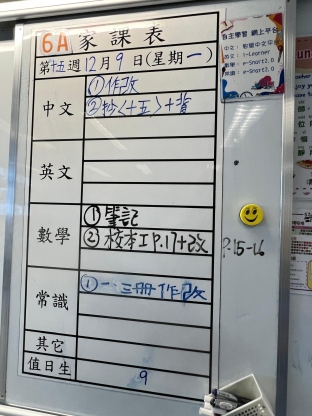 6A 家課表
第十五週12月9日(星期一)
中文
①作改
②抄<十五>+背
英文
數學
①筆記
②校本工P.17+改
P.15-16
常識
①一、三冊作改
其它
值日生
9
自主學習 網上平台